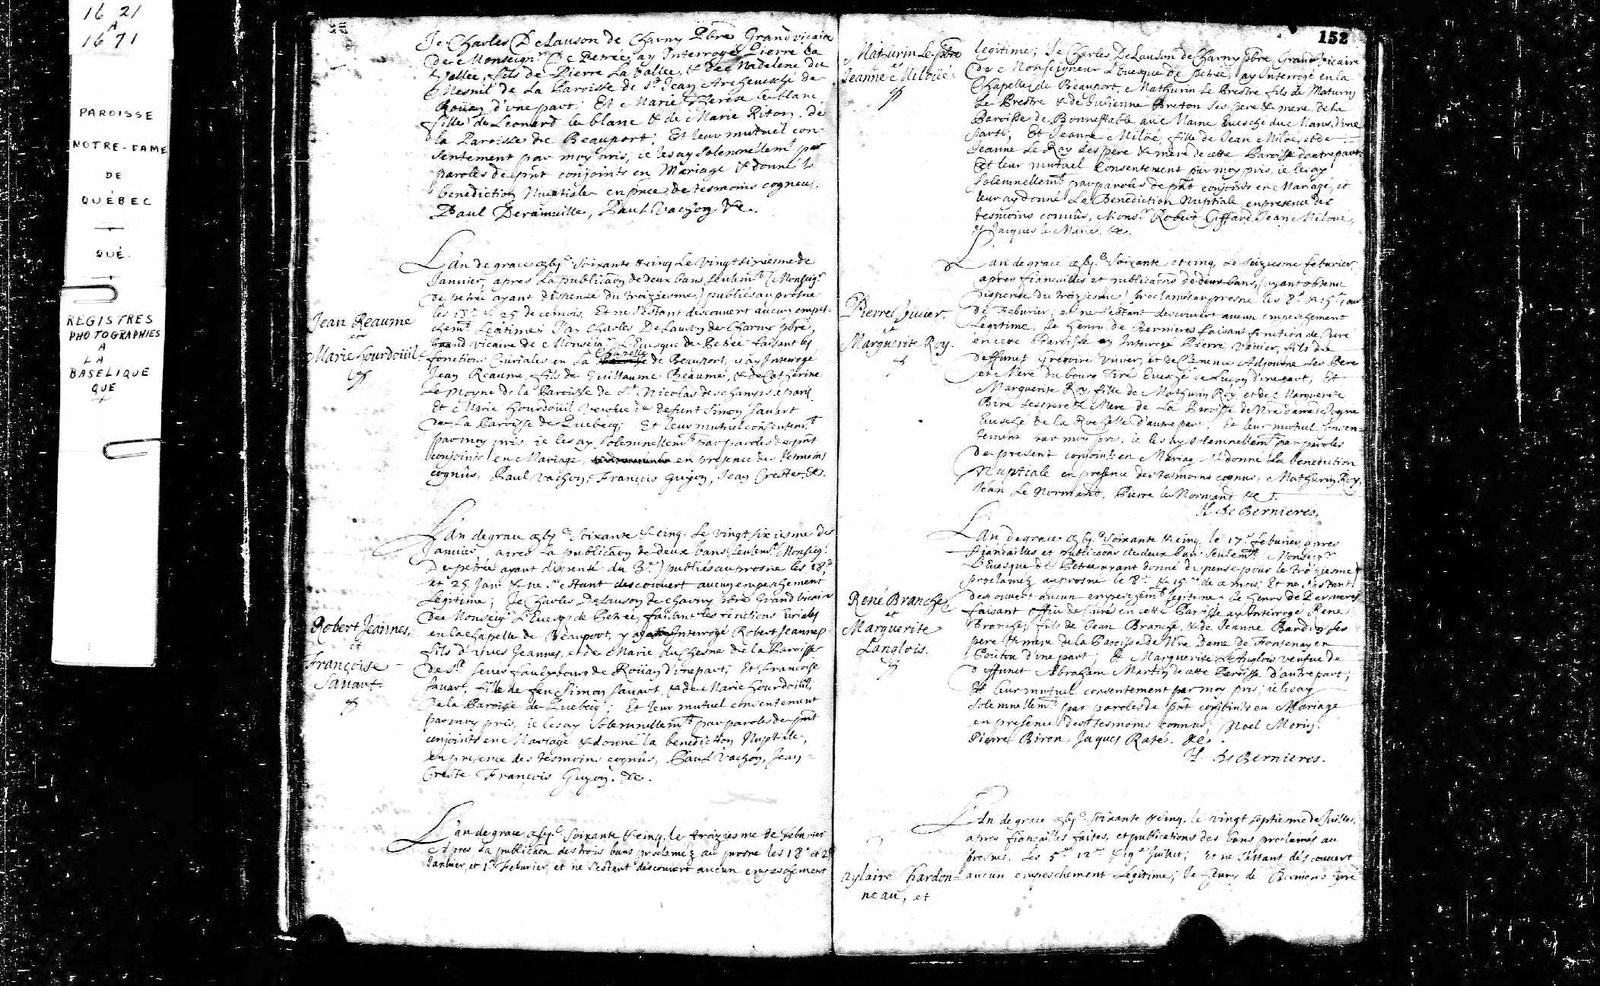 1621
A
1671
PAROISSE
NOTRE-DAME
DE
QUÉBEC
QUÉ.
REGISTRES
PHOTOGRAPHIES
A
LA
BASELIQUE
QUE
Je Charles De Lauson de Charny Pbre Grand vicaire
de Monseignr de Petrée, ay Interrogé Pierre La
Vallée, fils de Pierre La Vallée, & de Madelene du
Mesnil de La Paroisse de St Jean Archevesché de
Rouan d'une part; Et Marie Therese le blanc
fille de Leonard le blanc & de Marie Riton, de
la Paroisse de Beauport; Et leur mutuel con-
sentement par moy pris, ie les ay solemnellemt par
paroles de pnt conjoints en Mariage & donné la
benediction Nuptiale en pnce de tesmoins cogneus,
Paul Derainuille, Paul Vachon, &c.
Jean Reaume
et
Marie hourdouil
L'an de grace Soixante & cinq Le vingt sixiesme de
Janvier, apres La publicaon de deux bans seulemt (Monseigr
de Petrée ayant dispensé du troiziesme) publiés au prosne
les 18e & 25 de ce mois. Et ne s'estant descouvert aucun empes-
chemt Legitime; Je Charles De Lauson de Charny pbre,
Grand vicaire de Monseigr L'Evesque de Petrée faisant les
fonctions Curiales en La Chapelle de Beauport, ay Interrogé
Jean Reaume fils de Guillaume Reaume, & de Catherine
Le moyne de la Paroisse de St Nicolas des champs à Paris
Et Marie Hourdouil Veufue de defunt Simon Sauart
de La Paroisse de Quebecq; Et leur mutuel consentemt
par moy pris ie les ay solemnellemt par paroles de pnt
conjoints en Mariage, en presence des tesmoins
cognûs, Paul Vachon, François Guyon, Jean Crestes, &c.
Robert Jeannes,
et
Françoise
Sauart
L'an de grace Soixante & cinq. Le vingt sixiesme de
Janvier, apres La publicaon de deux bans seulemt (Monseigr
De petrée ayant dispensé du 3e) publiés au prosne les 18e
et 25 Janr & ne s'estant descouvert aucun empeschement
Legitime; Je Charles De Lauson de Charny pbre Grand vicaire
De Monseigr L'Evesq de Petrée, faisant les fonctions Curiales
en la chapelle de Beauport, ay Interrogé Robert Jeannes
fils d'Yves Jeannes, et de Marie duchesne de la Paroisse
de St Sever faulxbourg de Rouan d'une part; Et Françoise
Sauart, fille de feu Simon Sauart, & de Marie hourdouil,
De la Paroisse de Quebecq; Et leur mutuel consentement
par moy pris, ie les ay solemnellemt par paroles de pnt
conjoints en Mariage & donné la benediction Nuptiale,
en presence des tesmoins cognûs, Paul Vachon, Jean
Creste François Guyon, &c.
L'an de grace Soixante & cinq, le troiziesme de Feburier
Apres La publication des trois bans proclamez au prosne les 18e et 25
Janvier, et 1er Feburier, et ne s'estant descouvert aucun empeschement
152
Maturin Le prêtre
et
Jeanne Miloüe.
legitime; Je Charles De Lauson de Charny pbre, Grand Vicaire
De Monseigneur L'Evesque de Petrée, ay Interrogé en la
Chapelle de Beauport, Mathurin Le Prestre fils de Maturin
Le Prestre & de Vivienne Breton ses pere & mere de la
Paroisse de Bonnestable au Maine Evesché du Mans, d'une
part; Et Jeanne Miloë, fille de Jean Miloë, et de
Jeanne Le Roy ses pere & mere de cette Paroisse d'autre part
Et leur mutuel Consentement par moy pris, ie les ay
solemnellemt par paroles de pnt conjoints en Mariage, et
leur ay donné La Benediction Nuptiale en presence des
tesmoins connûs, Monsr Robert Giffard, Jean Miloüe,
Jacques le Marié, &c.
Pierre Juvier,
et
Marguerite Roy.
L'an de grace Soixante et cinq, le seiziesme Feburier,
apres fiançailles et publications de deux bans, (ayant obtenu
dispense du troiziesme) proclamés au prosne les 8e & 15e
de Feburier, et ne s'estant descouvert aucun empeschement
Legitime, Je Henry de Bernieres faisant fonction de Curé
en cette Paroisse ay Interrogé Pierre fils de
deffunct Gregoire et de Clemence ses Pere
et Mere du bourg Evesché de Luçon d'une part, Et
Marguerite Roy fille de Mathurin Roy et de Marguerite
Biré ses pere & Mere de La Paroisse de Nre Dame de Cogne
Evesché de la Rochelle d'autre part, Et leur mutuel consen-
tement par moy pris, ie les ay solemnellemt par paroles
de present conjoints en Mariage & donné La Benediction
Nuptiale en presence des tesmoins cognus, Mathurin Roy,
Jean Le Normand, Pierre Le Normand &c.
H. de Bernieres.
René Branche
et
Marguerite
Langlois.
L'an de grace Soixante & cinq, le 17e Feburier apres
fiançailles et publicaons de deux bans seulemt Monseigr
L'Evesque de Petrée ayant donné dispense pour le troiziesme
proclamez au prosne le 8e & 15me de ce mois, Et ne s'estant
descouvert aucun empeschemt legitime Je Henry de Bernieres
faisant office de Curé en cette Paroisse ay Interrogé René
Branche, fils de Jean Branche, & de Jeanne Bardin ses
pere & mere de la Paroisse de Nre Dame de Fontenay en
Poitou d'une part, & Marguerite L'Anglois veufue de
deffunct Abraham Martin de cette Paroisse d'autre part;
Et leur mutuel consentement par moy pris; ie les ay
solemnellemt par paroles de pnt conjoints en Mariage
en presence des tesmoins connus, Noel Morin,
Pierre Biron, Jaques Raté. &c.
H. de Bernieres.
aylaire Chardon-
neau, et
L'An de grace Soixante & cinq, le vingt septiesme de Juillet,
apres fiançailles faites, et publications des bans proclamés au
prosnes, les 5e 12e & 19e Juillet; et ne s'estant descouvert
aucun empeschement Legitime; Je Henry de Bernieres Curé